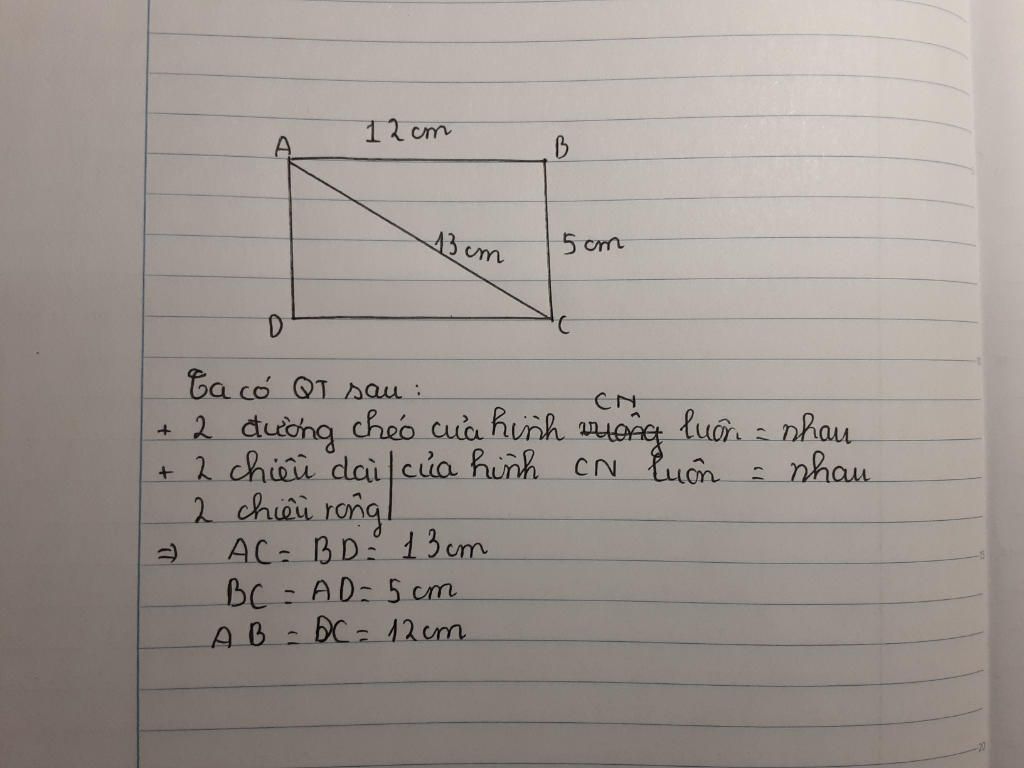 12 cm
A
B
13 cm
5 cm
D
C
Ta có QT sau :
CN
+ 2 đường chéo của hình vuông luôn = nhau
+ 2 chiều dài | của hình CN luôn = nhau
2 chiều rộng
=> AC = BD = 13 cm
BC = AD = 5 cm
AB = DC = 12 cm